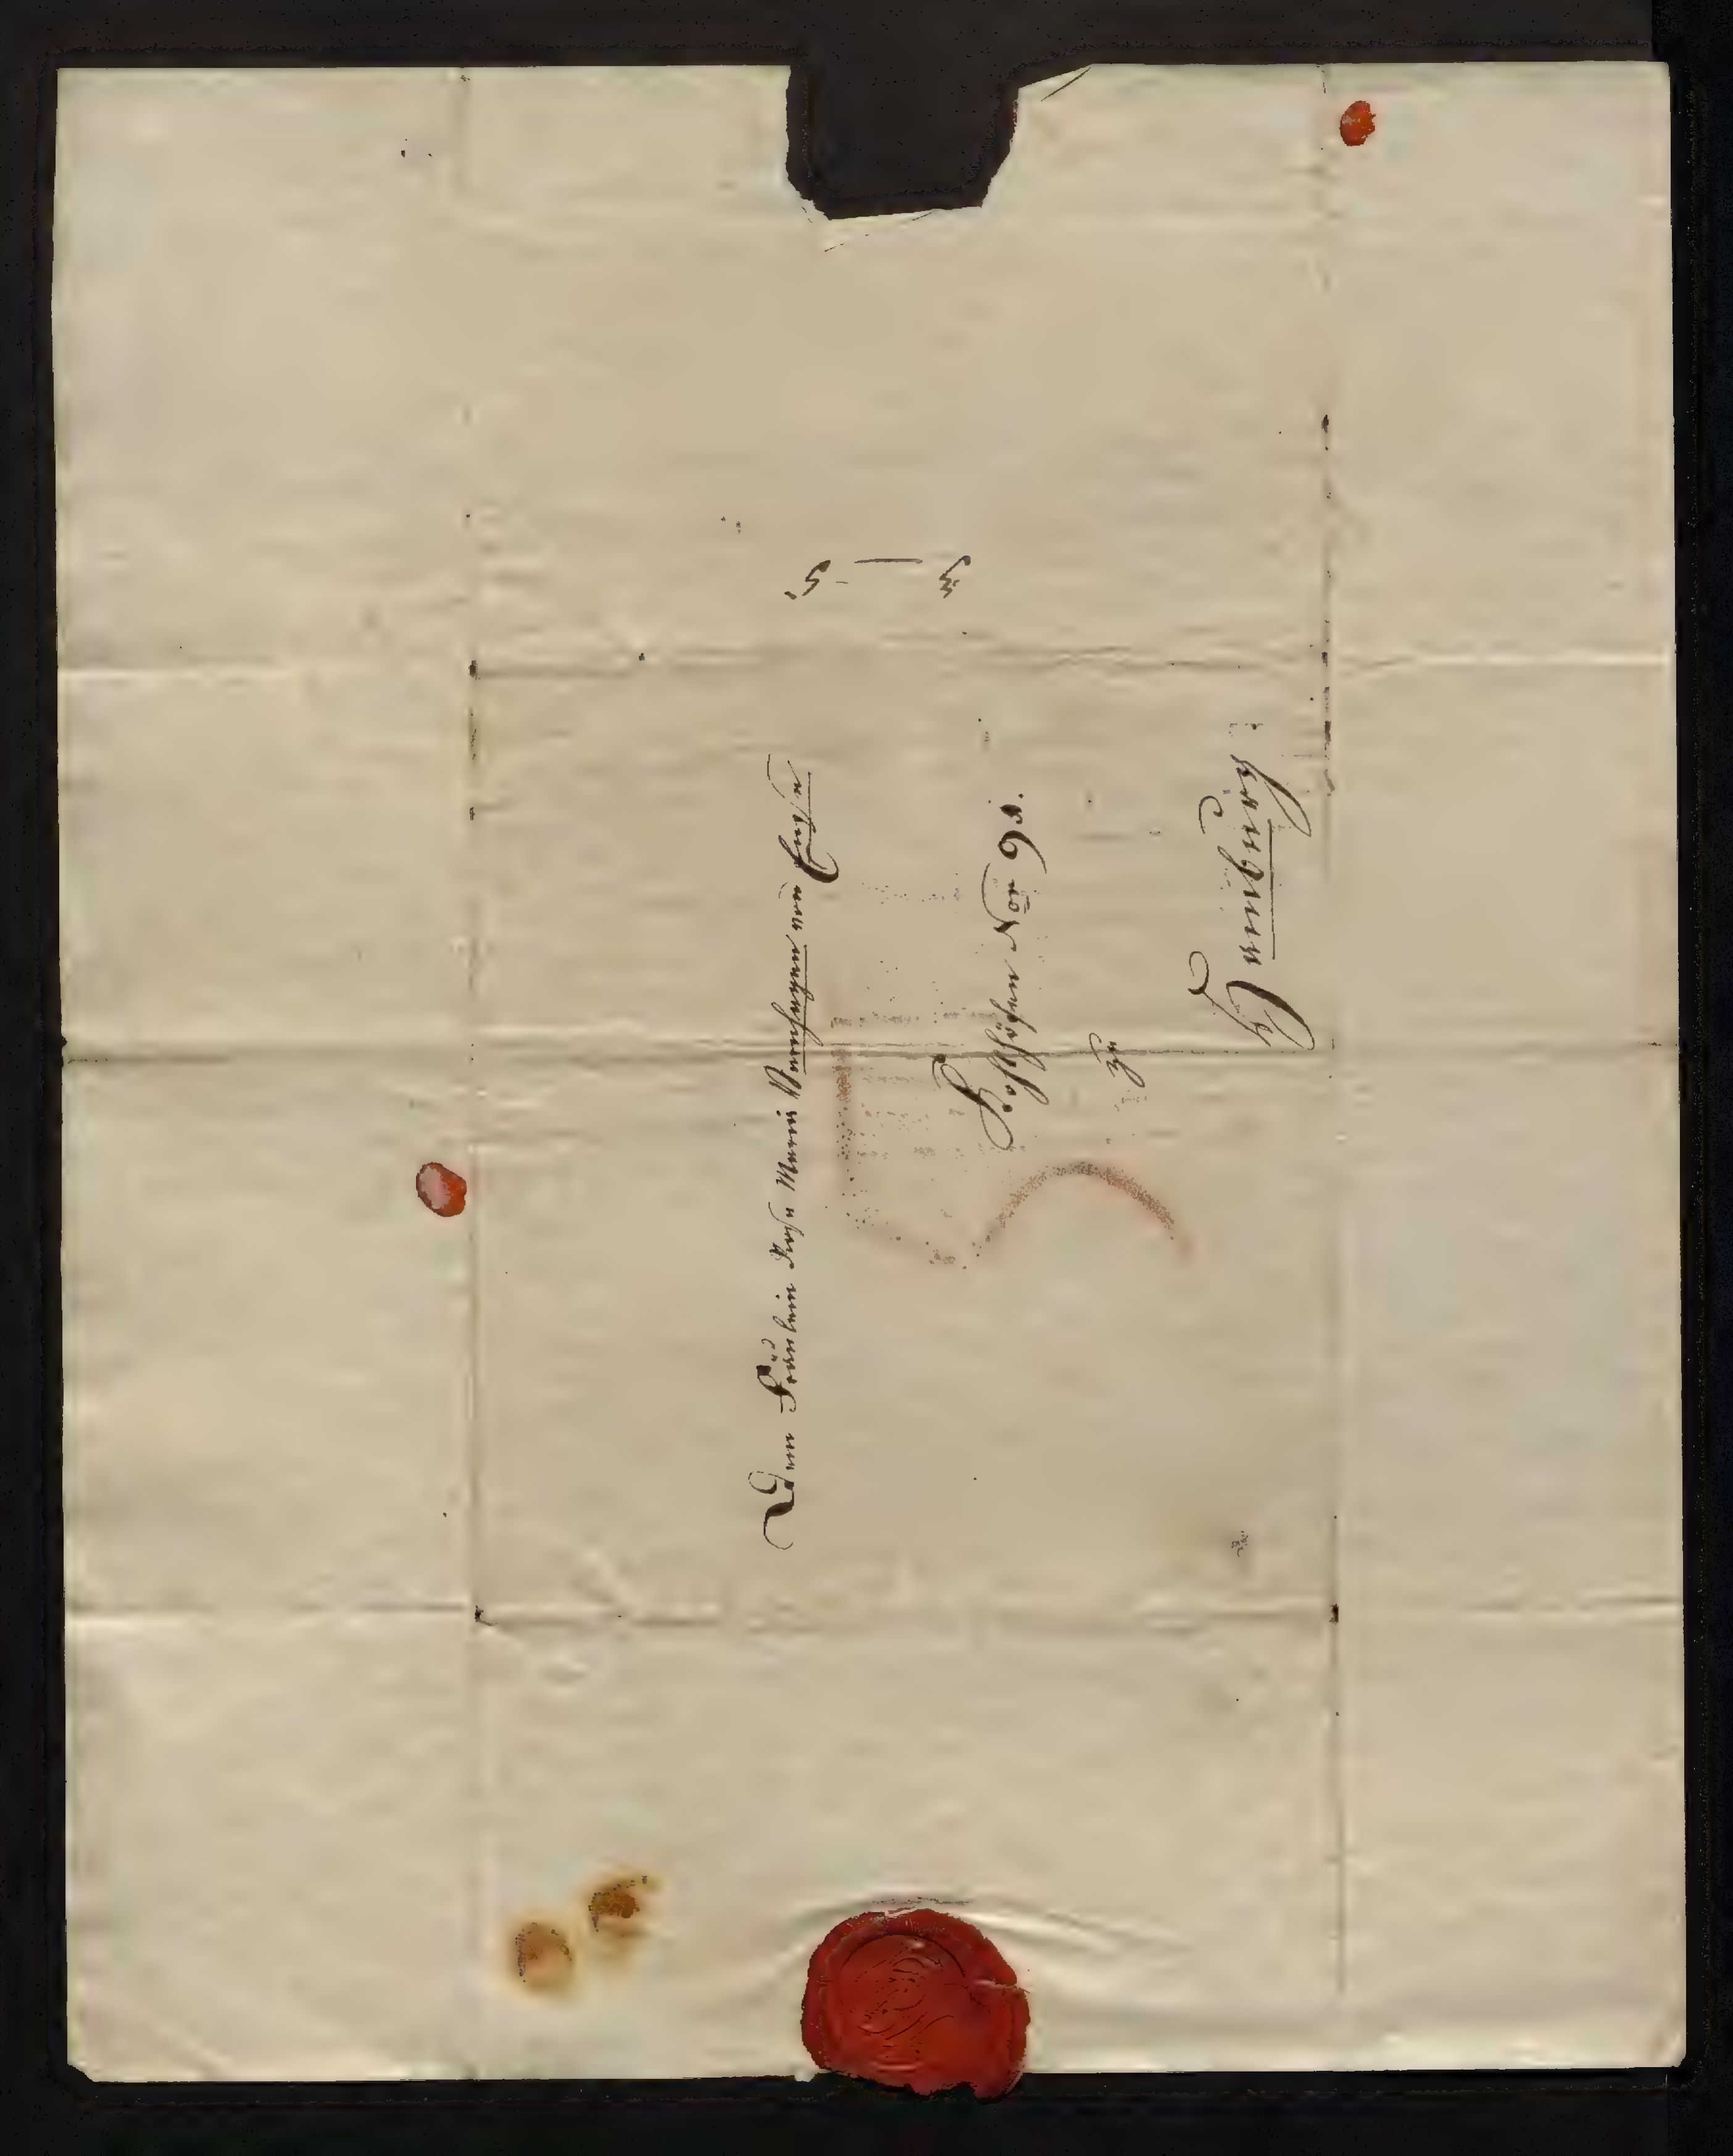 Dem Fräulein Rosa Maria Varnhagen von Ense
Posthöfen Nor 91.
zu
Hamburg